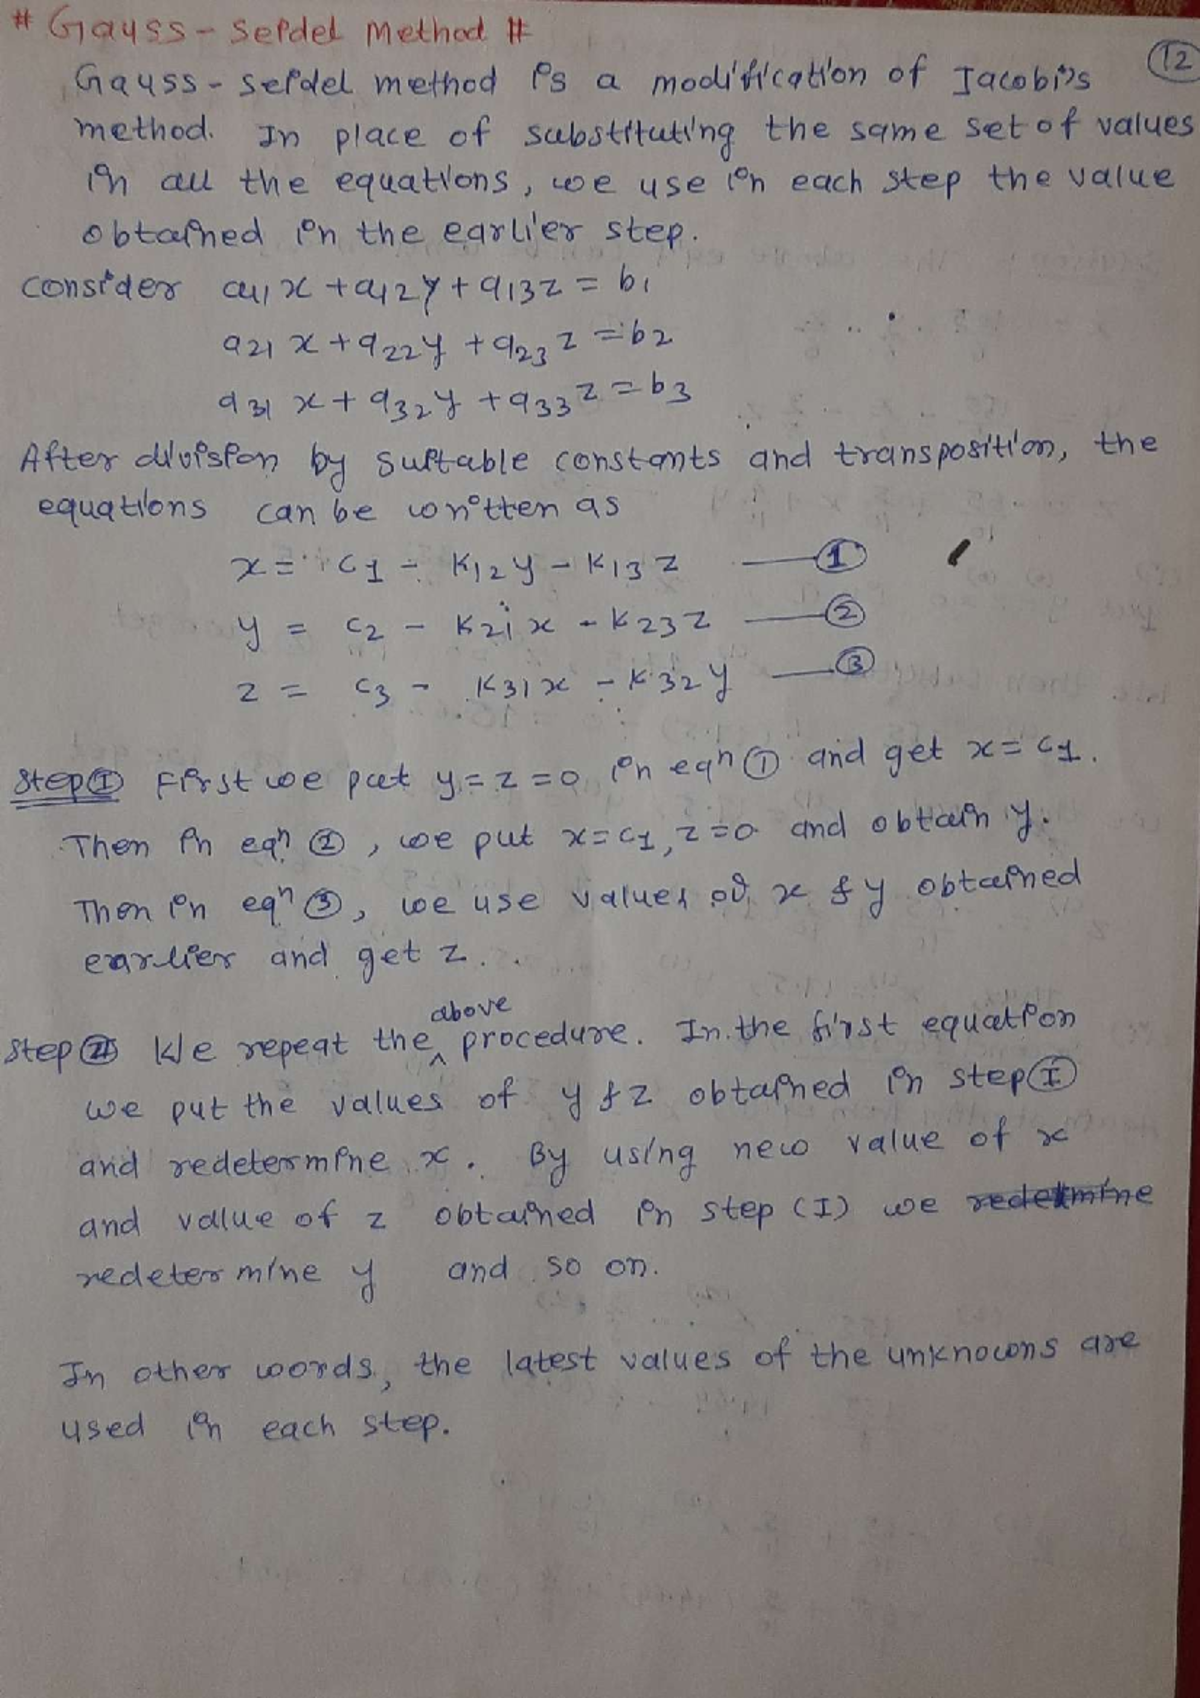 # Gauss-Seidel Method #
12
Gauss-Seidel method is a modification of Jacobi's
method. In place of substituting the same set of values
in all the equations, we use in each step the value
obtained in the earlier step.
Consider a11x + a12y + a13z = b1
a21x + a22y + a23z = b2
a31x + a32y + a33z = b3
After division by suitable constants and transposition, the
equations can be written as
x = c1 - k12y - k13z —— ①
y = c2 - k21x - k23z —— ②
z = c3 - k31x - k32y —— ③
Step Ⓘ First we put y=z=0 in eqn ① and get x=c1.
Then in eqn ②, we put x=c1, z=0 and obtain y.
Then in eqn ③, we use values of x & y obtained
earlier and get z.
Step II We repeat the above procedure. In the first equation
we put the values of y & z obtained in step Ⓘ
and redetermine x. By using new value of x
and value of z obtained in step (I) we redetermine
redetermine y and so on.
In other words, the latest values of the unknowns are
used in each step.